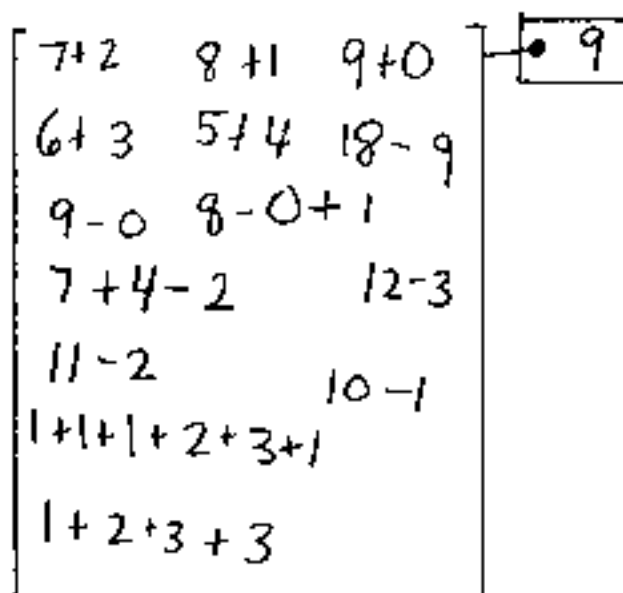 7+2 8+1 9+0 9
6+3 5+4 18-9
9-0 8-0+1
7+4-2 12-3
11-2
10-1
1+1+1+2+3+1
1+2+3+3